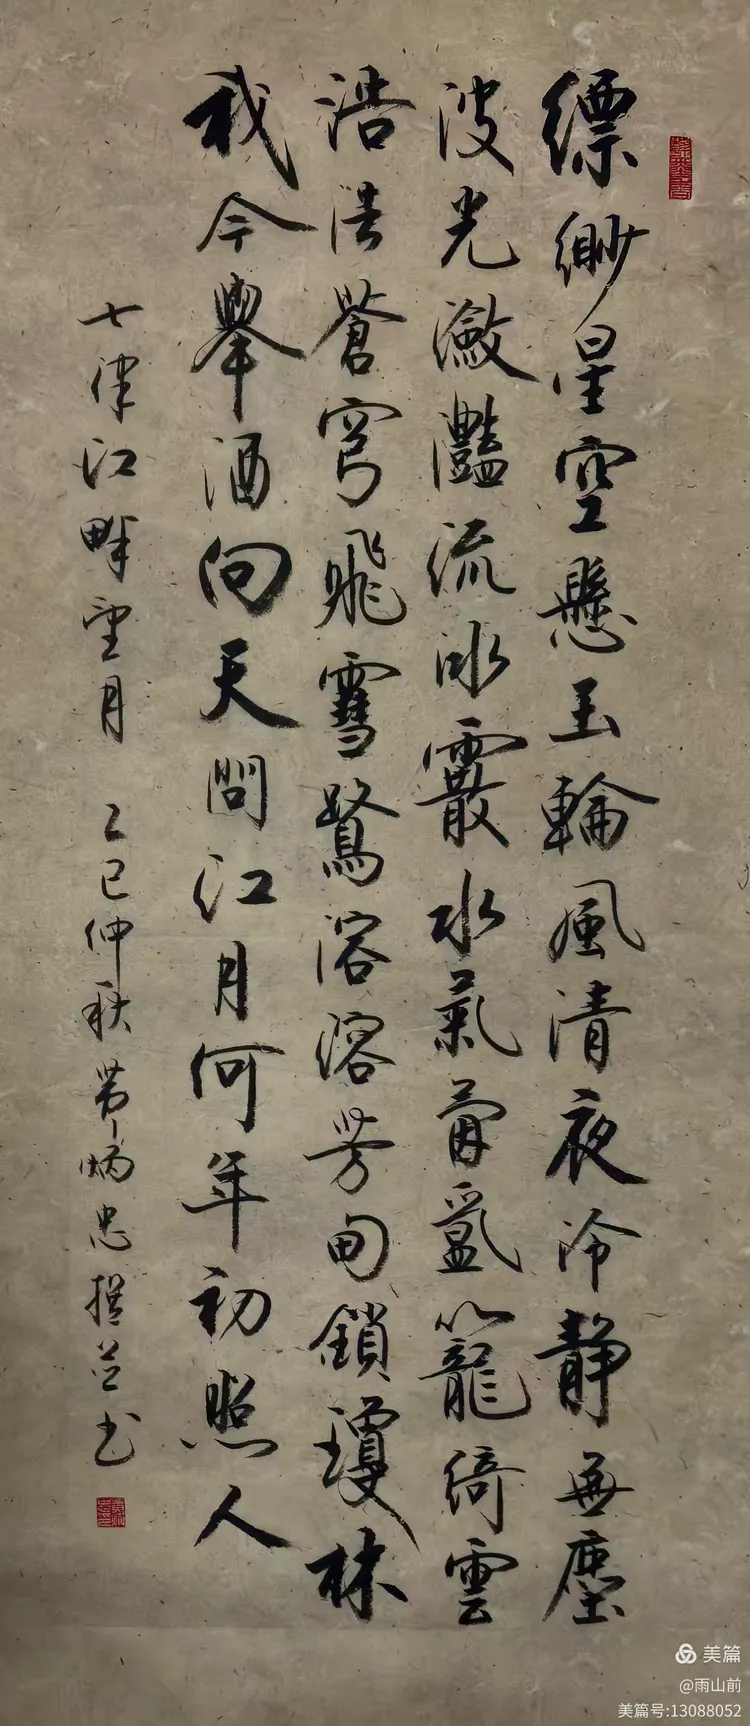 縹緲星空懸玉輪風清夜冷静無塵
波光瀲灩流冰霰水氣氤氲籠綺雲
浩浩蒼穹飛雪鷺溶溶芳甸鎖瓊林
我今舉酒向天問江月何年初照人
七律江畔望月 乙巳仲秋 炳忠撰並书
美篇
@雨山前
美篇号:13088052